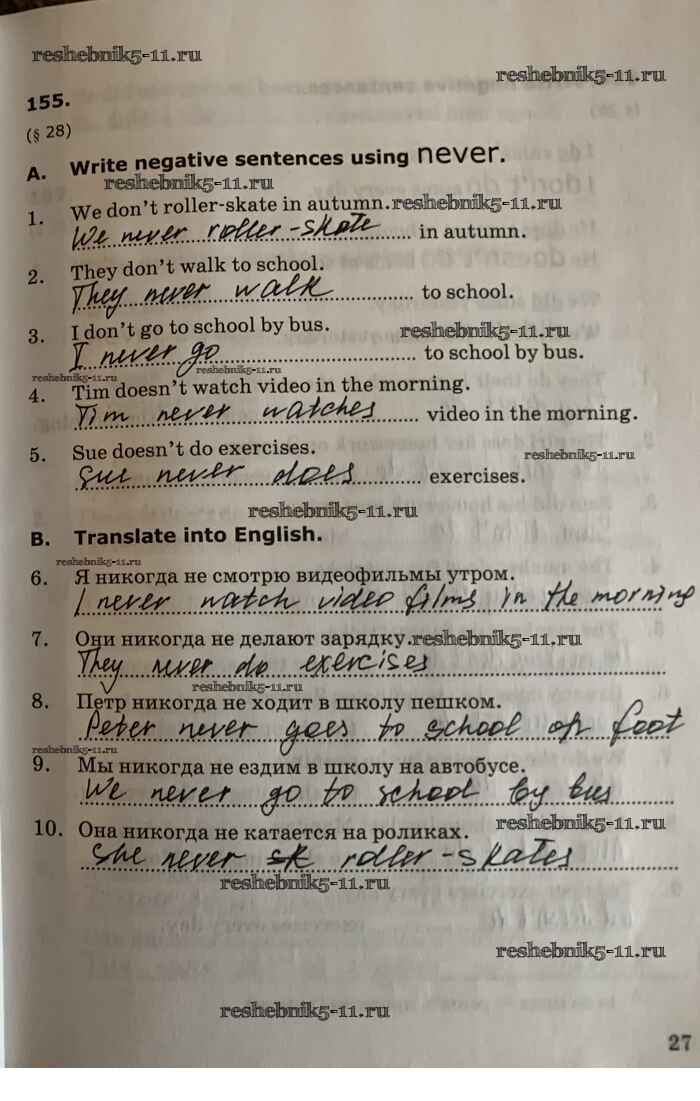 reshebnik5-11.ru
reshebnik5-11.ru
155.
(§ 28)
A. Write negative sentences using never.
reshebnik5-11.ru
1. We don't roller-skate in autumn.reshebnik5-11.ru
We never roller-skate in autumn.
2. They don't walk to school.
They never walk to school.
3. I don't go to school by bus. reshebnik5-11.ru
I never go to school by bus.
reshebnik5-11.ru reshebnik5-11.ru
4. Tim doesn't watch video in the morning.
Tim never watches video in the morning.
5. Sue doesn't do exercises. reshebnik5-11.ru
Sue never does exercises.
reshebnik5-11.ru
B. Translate into English.
reshebnik5-11.ru
6. Я никогда не смотрю видеофильмы утром.
I never watch video films in the morning
7. Они никогда не делают зарядку.reshebnik5-11.ru
They never do exercises
reshebnik5-11.ru
8. Петр никогда не ходит в школу пешком.
Peter never goes to school on foot
reshebnik5-11.ru
9. Мы никогда не ездим в школу на автобусе.
We never go to school by bus
10. Она никогда не катается на роликах. reshebnik5-11.ru
She never sk roller-skates
reshebnik5-11.ru
reshebnik5-11.ru
reshebnik5-11.ru
27